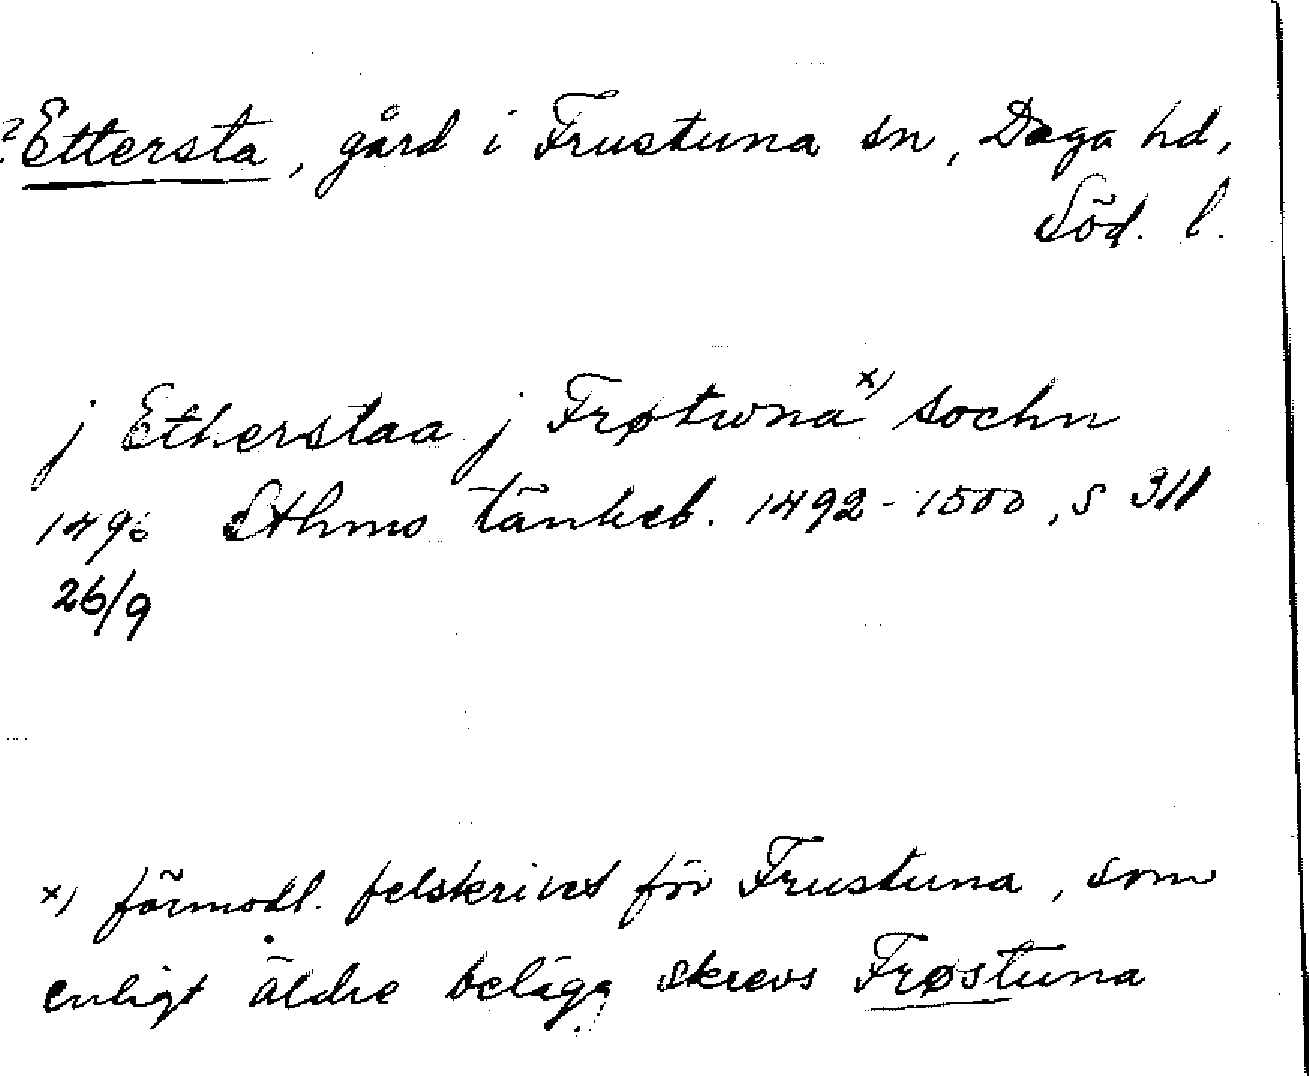 ? Ettersta, gård i Frustuna sn, Daga hd,
Söd. l.
j Etherstaa j Frøtwna x) sochn
1496 Sthms tänkeb. 1492-1500, s 311
26/9
x) förmodl. felskrivet för Frustuna, som
enligt äldre belägg skrevs Frøstuna